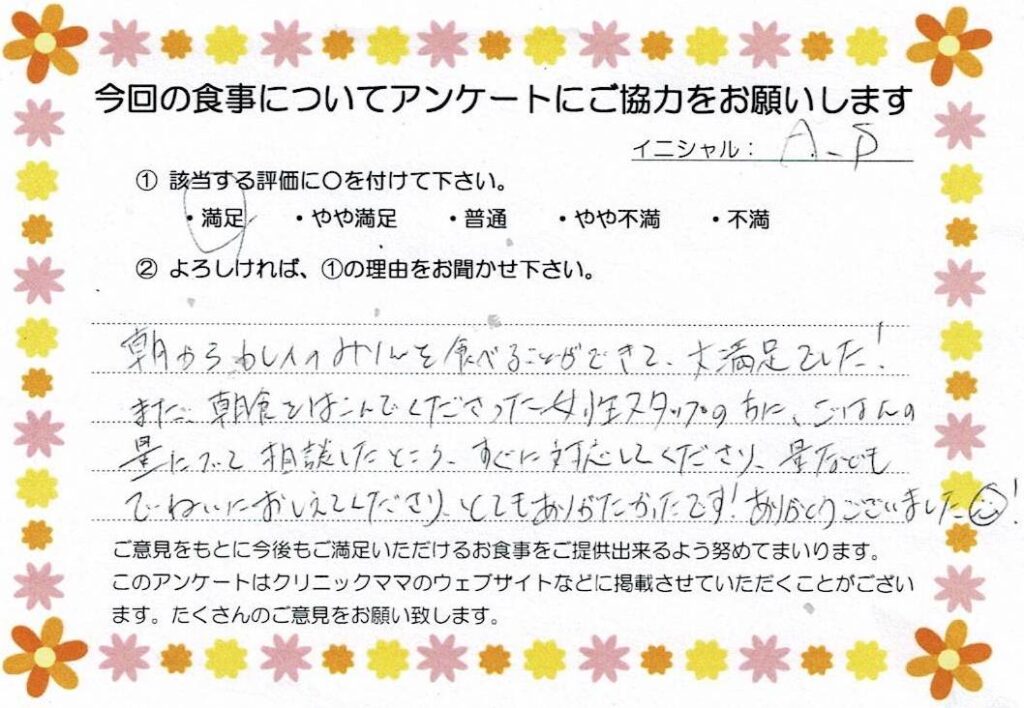 今回の食事についてアンケートにご協力をお願いします
イニシャル： A.S
① 該当する評価に〇を付けて下さい。
・満足 ・やや満足 ・普通 ・やや不満 ・不満
② よろしければ、①の理由をお聞かせ下さい。
朝から を食べることができて、大満足でした！
また、朝食をはこんでくださった女性スタッフの方に、ごはんの
量について相談したところ、すぐに対応してくださり、量なども
てーねいにおしえてくださり、とてもありがたかったです！ありがとうございました！
ご意見をもとに今後もご満足いただけるお食事をご提供出来るよう努めてまいります。
このアンケートはクリニックママのウェブサイトなどに掲載させていただくことがござい
ます。たくさんのご意見をお願い致します。